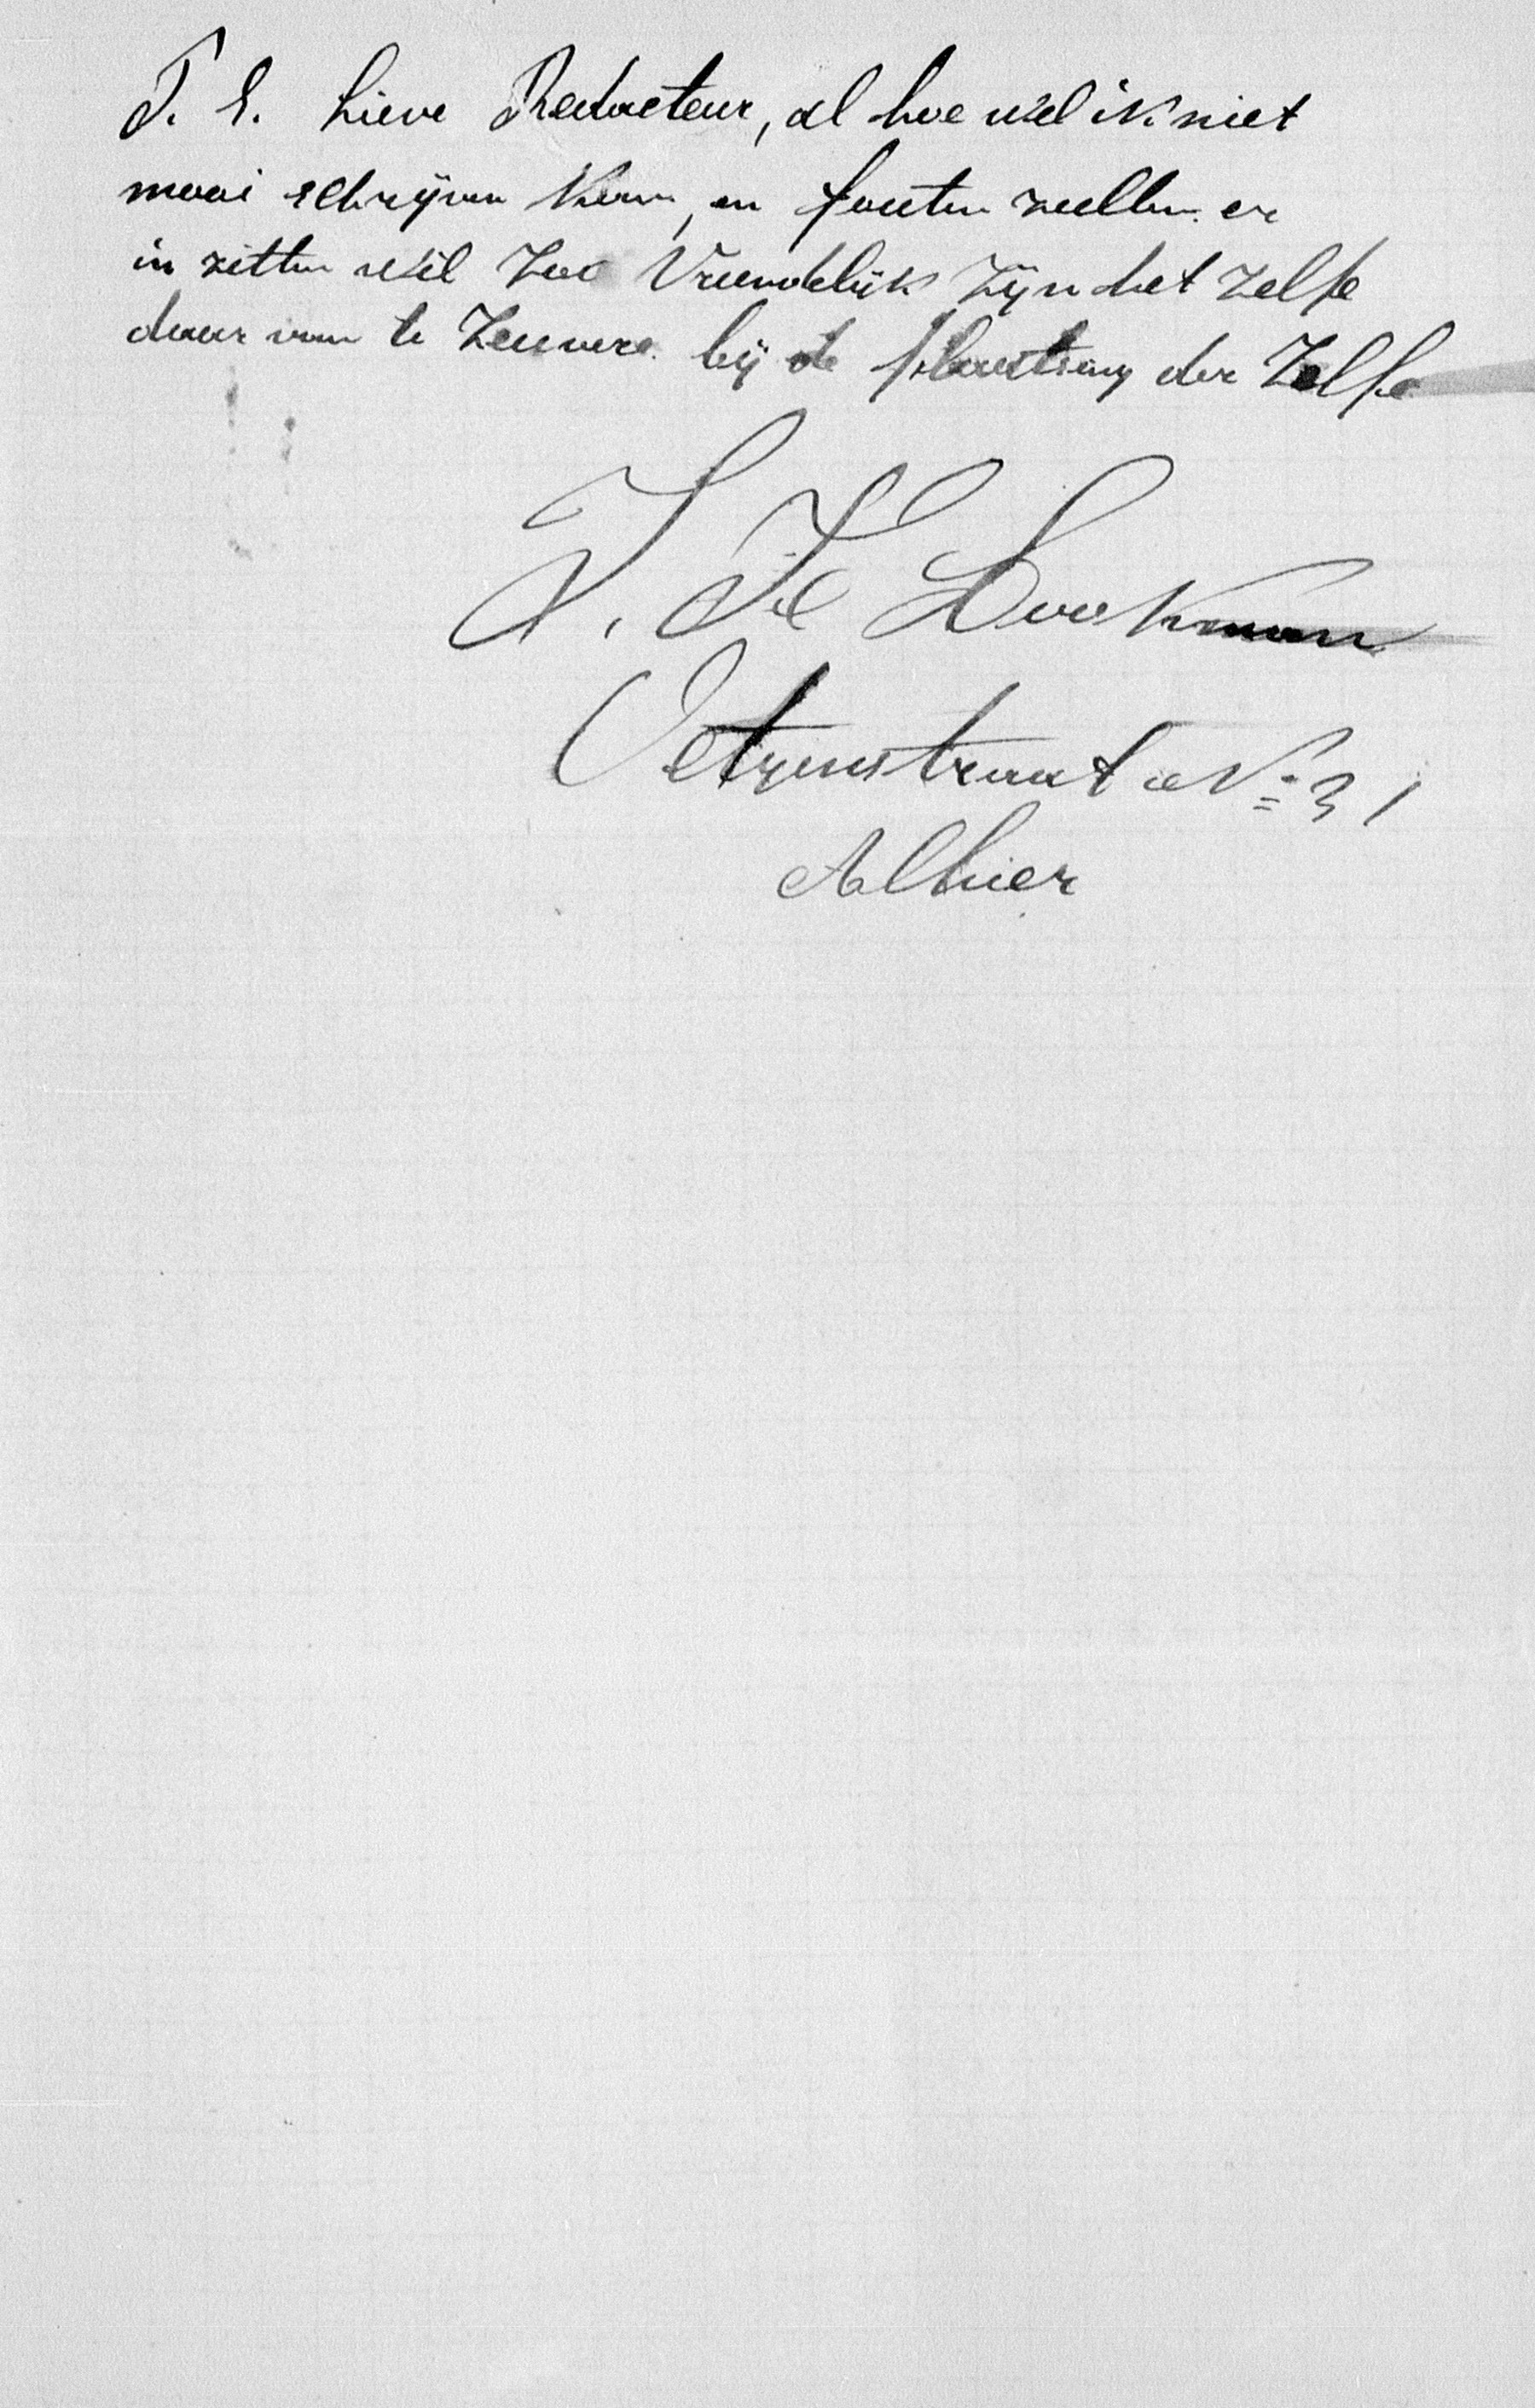 P. S. Lieve Redacteur, al hoe wel ik niet
mooi schrijven kan, en fouten zullen er
in zitten wil zoo vriendelijk zijn het zelfe
daar van te zeuvere bij de plaatsing der zelfe
J. H Bookman
straat No 31
Alhier